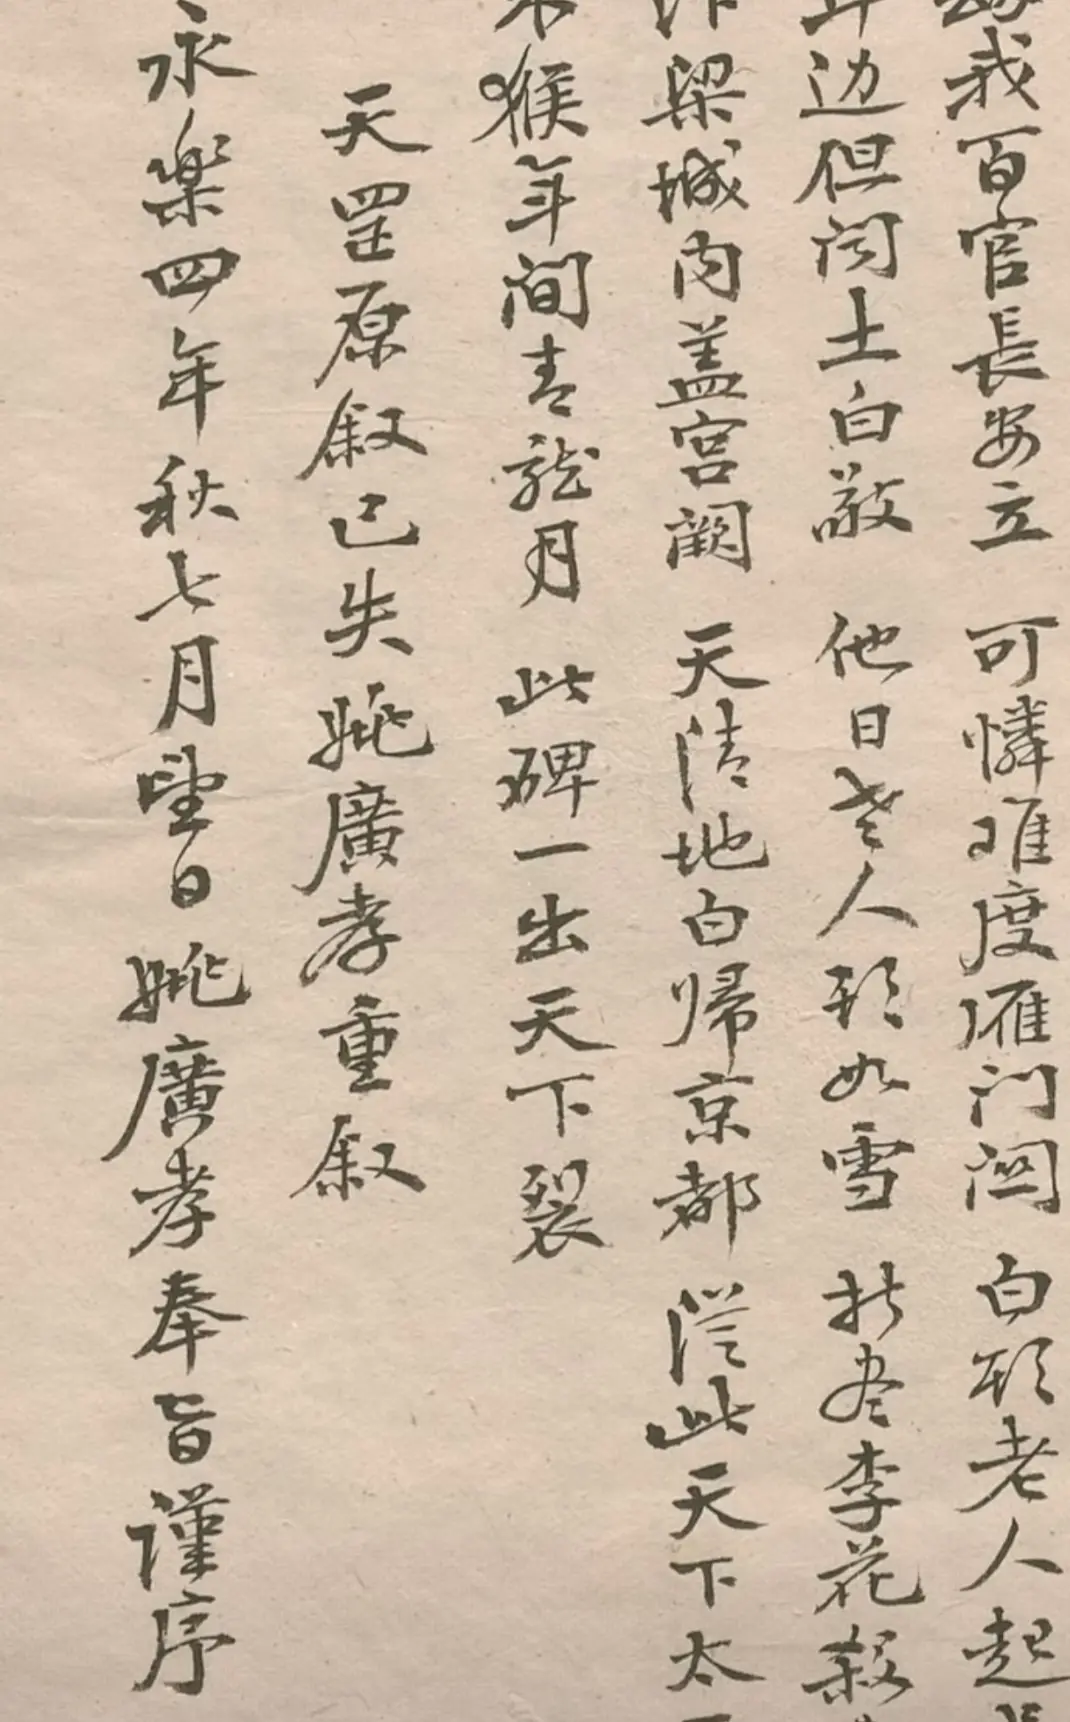 我百官長安立　可憐难度雁门関　白头老人起
年边但闵土白敲　他日老人头如雪　折尽李花殺
梁城内盖宫阙　天清地白帰京都　従此天下太
猴年间青龙月　此碑一出天下裂
天罡原叙已失姚廣孝重叙
永楽四年秋七月望日姚廣孝奉旨谨序